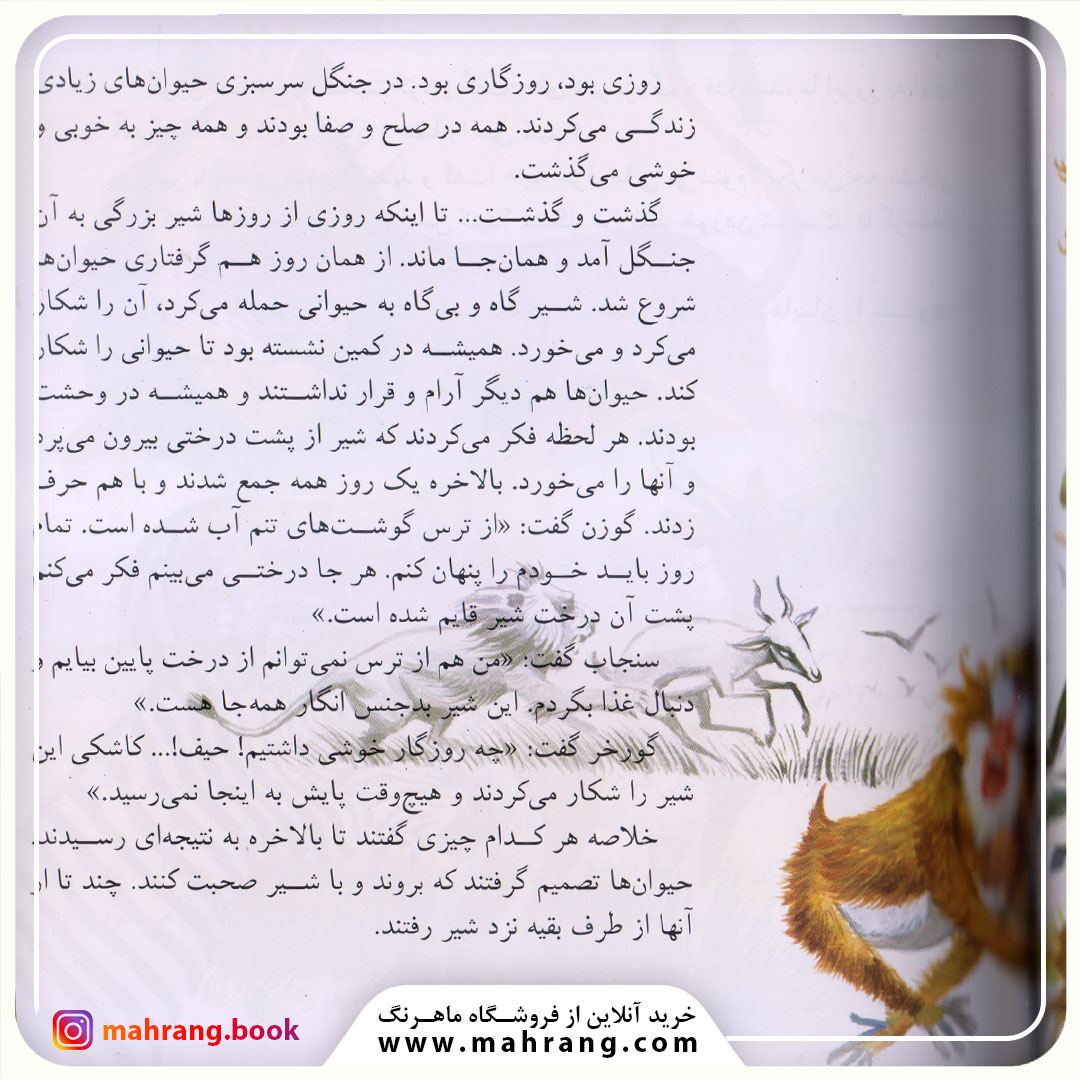 روزی بود، روزگاری بود. در جنگل سرسبزی حیوان‌های زیادی
زندگی می‌کردند. همه در صلح و صفا بودند و همه چیز به خوبی و
خوشی می‌گذشت.
گذشت و گذشت... تا اینکه روزی از روزها شیر بزرگی به آن
جنگل آمد و همان‌جا ماند. از همان روز هم گرفتاری حیوان‌ها
شروع شد. شیر گاه و بی‌گاه به حیوانی حمله می‌کرد، آن را شکار
می‌کرد و می‌خورد. همیشه در کمین نشسته بود تا حیوانی را شکار
کند. حیوان‌ها هم دیگر آرام و قرار نداشتند و همیشه در وحشت
بودند. هر لحظه فکر می‌کردند که شیر از پشت درختی بیرون می‌پرد
و آنها را می‌خورد. بالاخره یک روز همه جمع شدند و با هم حرف
زدند. گوزن گفت: «از ترس گوشت‌های تنم آب شده است. تمام
روز باید خودم را پنهان کنم. هر جا درختی می‌بینم فکر می‌کنم
پشت آن درخت شیر قایم شده است.»
سنجاب گفت: «من هم از ترس نمی‌توانم از درخت پایین بیایم و
دنبال غذا بگردم. این شیر بدجنس انگار همه‌جا هست.»
گورخر گفت: «چه روزگار خوشی داشتیم! حیف!... کاشکی این
شیر را شکار می‌کردند و هیچ‌وقت پایش به اینجا نمی‌رسید.»
خلاصه هر کدام چیزی گفتند تا بالاخره به نتیجه‌ای رسیدند.
حیوان‌ها تصمیم گرفتند که بروند و با شیر صحبت کنند. چند تا از
آنها از طرف بقیه نزد شیر رفتند.
خرید آنلاین از فروشگاه ماهرنگ
www.mahrang.com
mahrang.book